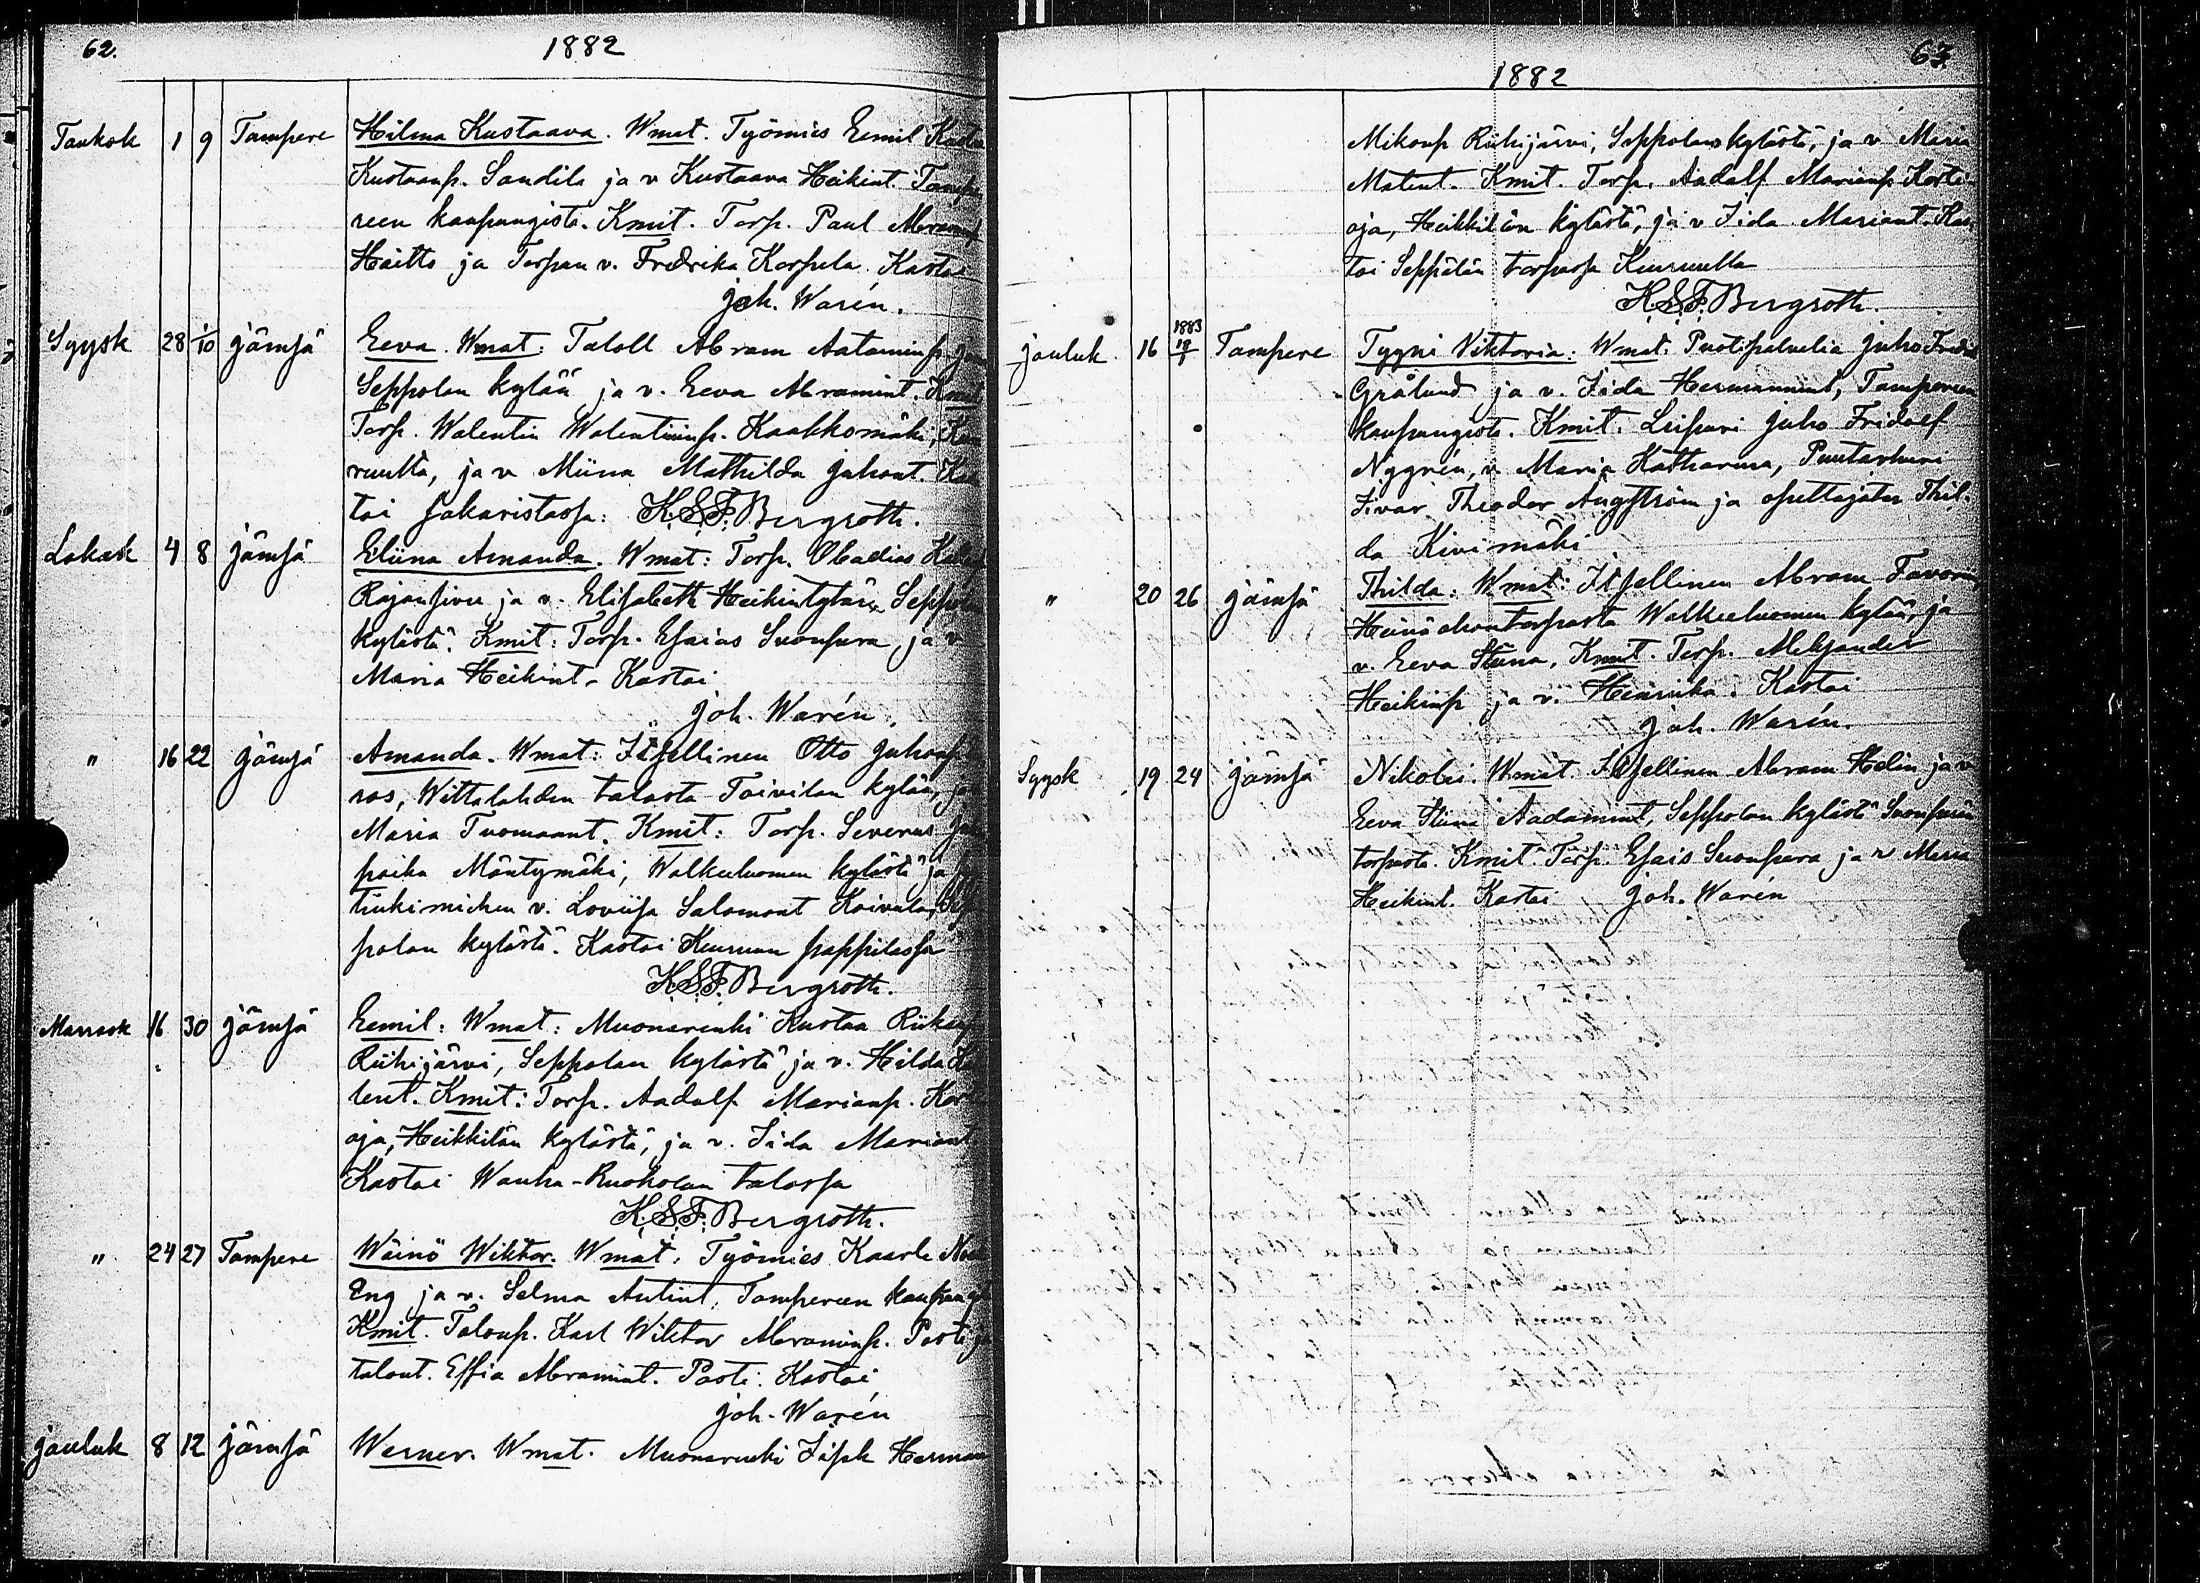 62.
1882
Toukok 1 9 Tampere Hilma Kustaava. Wmat. Työmies Eemil
Kustaanp. Sandila ja v Kustaava Heikint. Tampe
reen kaupungista. Kmit. Torp. Paul
Haitto ja Torpan v. Fredrika Korpela Kastoi
Joh. Warén.
Syysk 28 1/10 Jämsä Eeva. Wmat: Taloll Abram Aataminp
Seppolan kylää ja v. Eeva Abramint. Kmit
Torp. Walentin Walentininp. Kaakkomäki,
ruulta, ja v Miina Mathilda Juhont. Kas
toi Sakaristossa: K.S.F. Bergroth.
Lokak 4 8 Jämsä Eliina Amanda. Wmat: Torp. Obadias
Rajansivu ja v. Elisabeth Heikintytär, Seppol
kylästä. Kmit: Torp. Esaias Suonpera ja v
Maria Heikint. Kastoi
Joh. Warén.
" 16 22 Jämsä Amanda. Wmat: Itsellinen Otto Juhonp
ros, Wittalahden talosta Toivilan kylää, ja
Maria Tuomaant. Kmit: Torp. Severus
poika Mäntymäki, Walkeeluomen kylästä ja
tiukimiehen v. Loviisa Salomont Koivula, Sep
polan kylästä. Kastoi Keuruun pappilassa
K.S.F. Bergroth.
Marrask 16 30 Jämsä Eemil: Wmat: Muonarenki Kustaa
Riihijärvi, Seppolan kylästä ja v. Hilda
tent. Kmit: Torp. Aadolf Marianp.
oja, Heikkilän kylästä, ja v. Iida Mariant
Kastoi Wanha-Ruokolan talossa
K.S.F. Bergroth.
" 24 27 Tampere Wäinö Wiktor. Wmat. Työmies Kaarle
Eng ja v. Selma Antint, Tampereen kaupung
Kmit. Talonp. Karl Wiktor Abraminp. Posti ja
talont. Effia Abramint. Posti. Kastoi
Joh. Warén
Jouluk 8 12 Jämsä Werner. Wmat. Muonarenki Herman
63.
1882
Mikonp Riihijärvi, Seppolan kylästä, ja v Maria
Matint. Kmit. Torp. Aadolf Marianp Korte
oja, Heikkilän kylästä, ja v Iida Mariant. Kas
toi Seppälän torpassa Keuruulla
K.S.F. Bergroth.
Jouluk 16 1883 18/1 Tampere Tyyni Viktoria: Wmat. Puotipalvelia Juho
Grålund ja v. Iida Hermannint, Tampereen
kaupungista. Kmit. Leipuri Juho Fridolf
Nygrén, v. Maria Katharina, Puutarhuri
Iivar Theodor Ångström ja opettajatar Thil
da Kivimäki
" 20 26 Jämsä Thilda: Wmat: Itsellinen Abram Favorin,
Heinäahontorpasta Walkeeluomen kylää, ja
v. Eeva Stiina. Kmit. Torp. Aleksander
Heikinp ja v. Heinrika. Kastoi
Joh. Warén.
Syysk 19 24 Jämsä Nikolai. Wmat. Itsellinen Abram Helin ja v
Eeva Stiina Aadamint, Seppolan kylästä Suonperän
torpasta. Kmit. Torp. Esais Suonpera ja v Maria
Heikint. Kastoi Joh. Warén